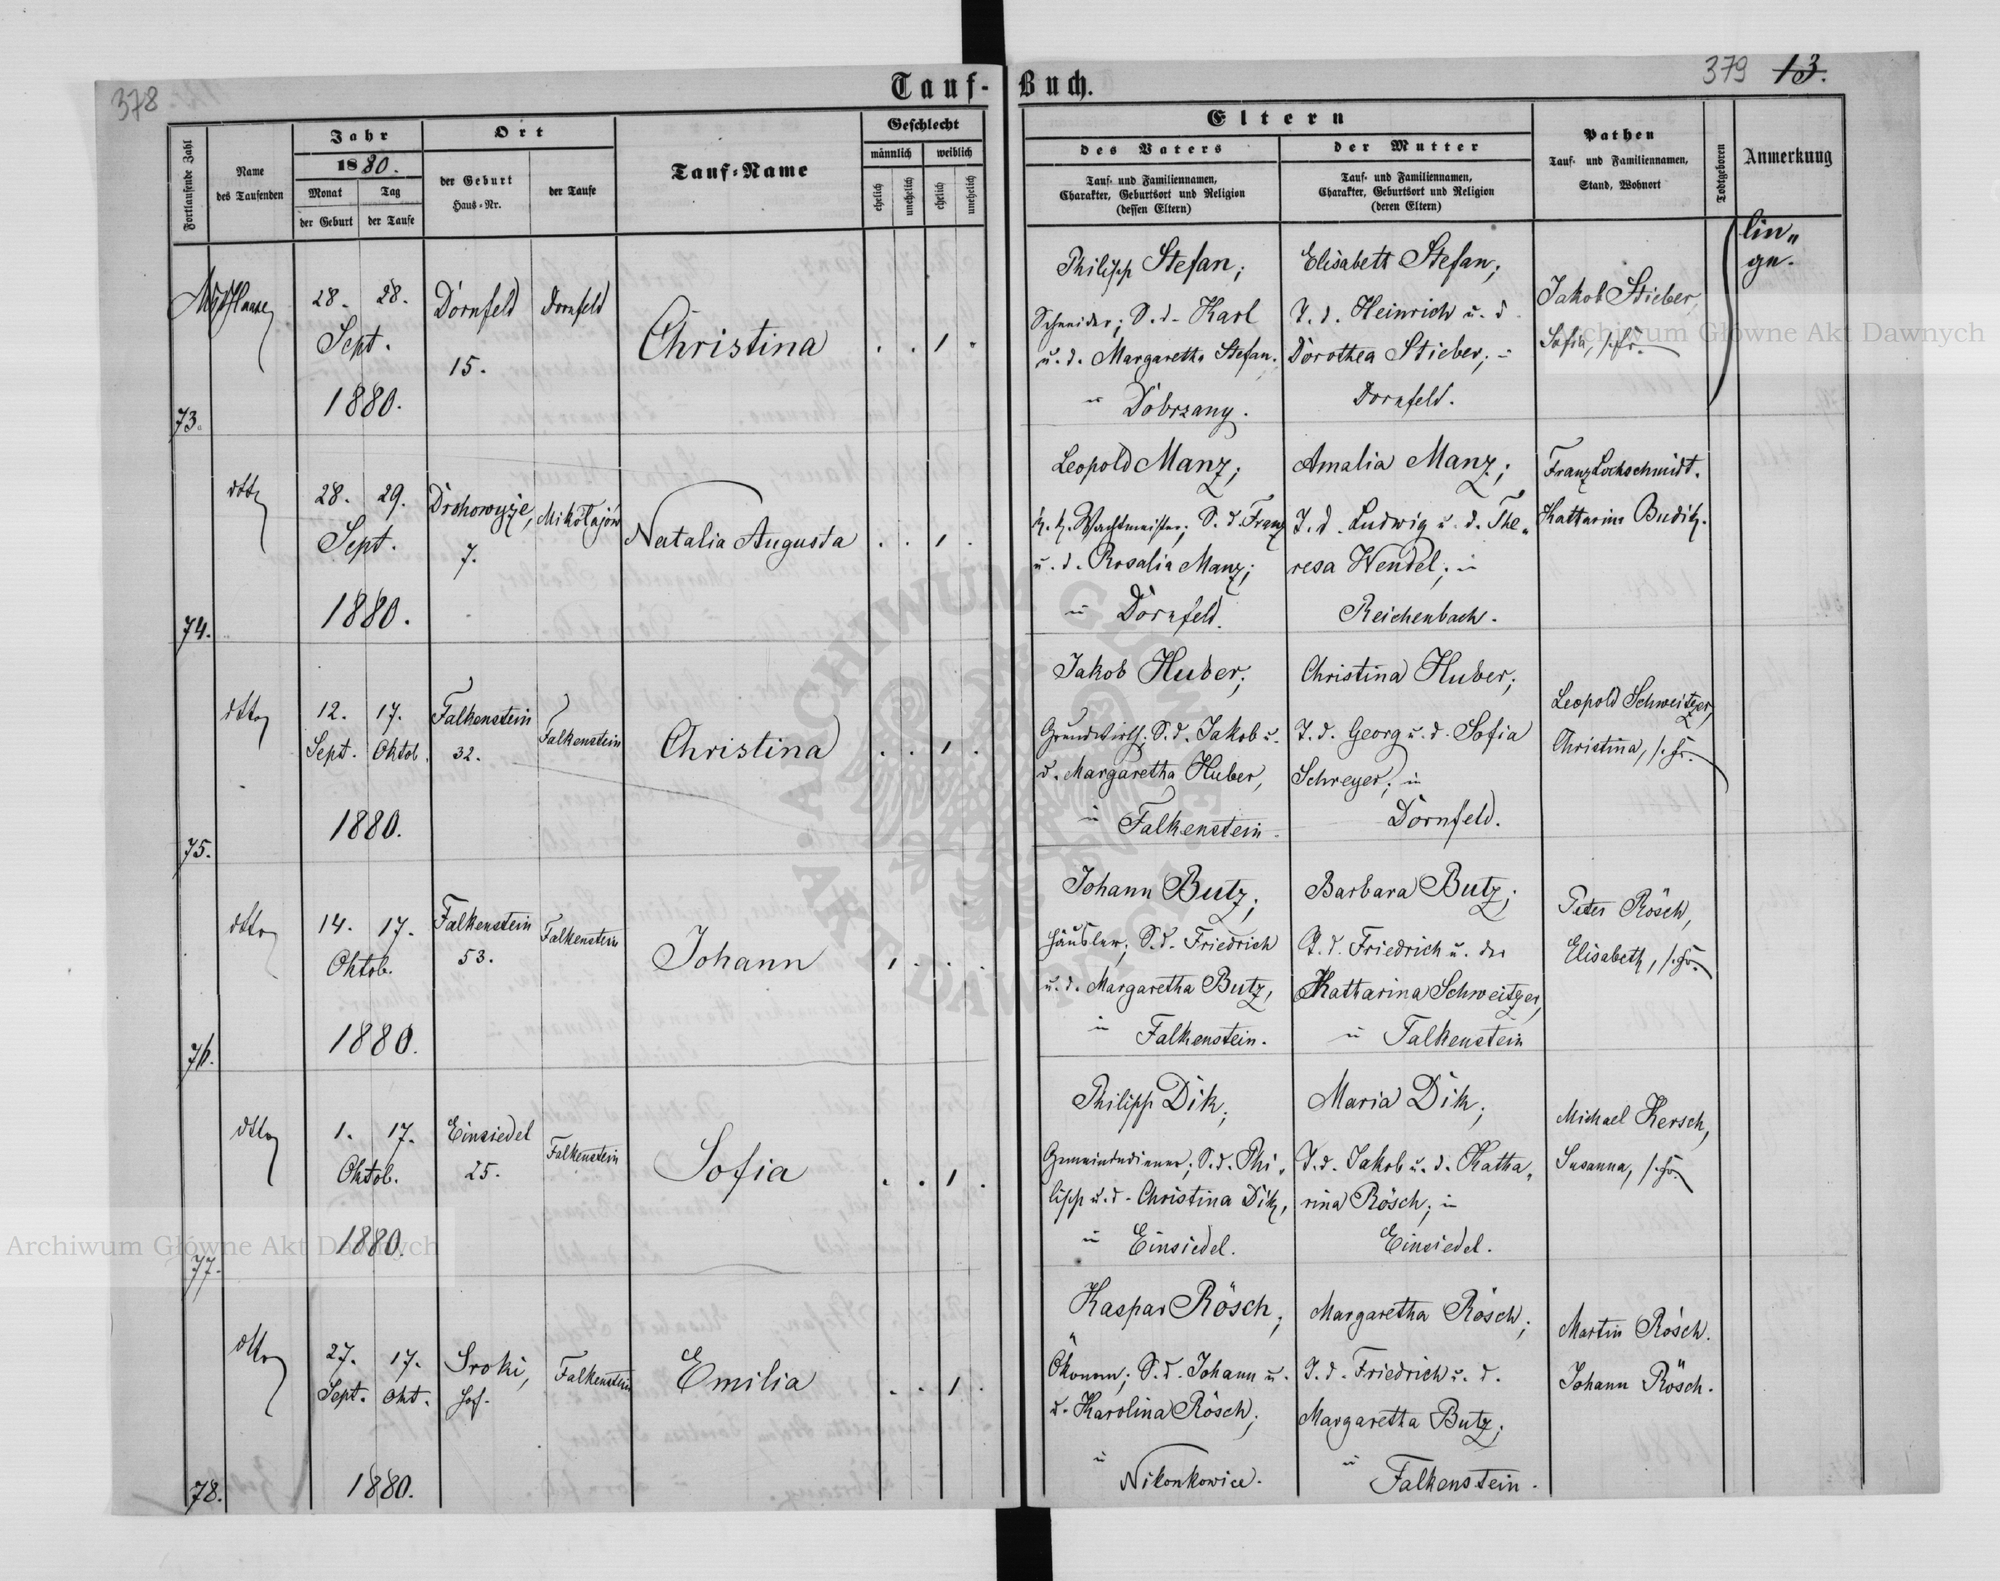 378
Tauf-Buch.
379 13.
Fortlaufende Zahl
Name
des Taufenden
Jahr
1880.
Monat
Tag
der Geburt
der Taufe
Ort
der Geburt
Haus-Nr.
der Taufe
Tauf-Name
Geschlecht
männlich
weiblich
ehelich
unehelich
ehelich
unehelich
Eltern
des Vaters
Tauf- und Familiennamen,
Charakter, Geburtsort und Religion
(dessen Eltern)
der Mutter
Tauf- und Familiennamen,
Charakter, Geburtsort und Religion
(deren Eltern)
Pathen
Tauf- und Familiennamen,
Stand, Wohnort
Todtgeboren
Anmerkung
73.
28. 28.
Sept.
1880.
Dornfeld
15.
Dornfeld
Christina
1
Philipp Stefan;
Schneider; S. d. Karl
u. d. Margaretha Stefan.
in Dobrzany.
Elisabeth Stefan;
T. d. Heinrich u. d.
Dorothea Stieber; in
Dornfeld.
Jakob Stieber,
Sofia,
74.
dtto
28. 29.
Sept.
1880.
Drohowyże,
7.
Mikołajów
Natalia Augusta
1
Leopold Manz;
k. k. Wachtmeister; S. d. Franz
u. d. Rosalia Manz;
in Dornfeld.
Amalia Manz;
T. d. Ludwig u. d. The-
resa Wendel; in
Reichenbach.
Franz Lockschmidt.
Katharina
75.
dtto
12. 17.
Sept. Oktob.
1880.
Falkenstein
32.
Falkenstein
Christina
1
Jakob Huber;
Grundwirth; S. d. Jakob u.
d. Margaretha Huber,
in Falkenstein.
Christina Huber;
T. d. Georg u. d. Sofia
Schreyer; in
Dornfeld.
Leopold Schweitzer,
Christina,
76.
dtto
14. 17.
Oktob.
1880.
Falkenstein
53.
Falkenstein
Johann
1
Johann Butz;
Häusler; S. d. Friedrich
u. d. Margaretha Butz,
in Falkenstein.
Barbara Butz;
T. d. Friedrich u. der
Katharina Schweitzer,
in Falkenstein
Peter Rösch,
Elisabeth,
77.
dtto
1. 17.
Oktob.
1880.
Einsiedel
25.
Falkenstein
Sofia
1
Philipp Dik;
Gemeindediener; S. d. Phi-
lipp u. d. Christina Dik,
in Einsiedel.
Maria Dik;
T. d. Jakob u. d. Katha-
rina Rösch; in
Einsiedel.
Michael Kersch,
Susanna,
78.
dtto
27. 17.
Sept. Okt.
1880.
Sroki,
Hof.
Falkenstein
Emilia
1
Kaspar Rösch;
Ökonom; S. d. Johann u.
d. Karolina Rösch;
in
Nikonkowice.
Margaretha Rösch;
T. d. Friedrich u. d.
Margaretha Butz;
in
Falkenstein.
Martin Rösch.
Johann Rösch.
Archiwum Główne Akt Dawnych
Archiwum Główne Akt Dawnych
ARCHIWUM GŁÓWNE AKT DAWNYCH